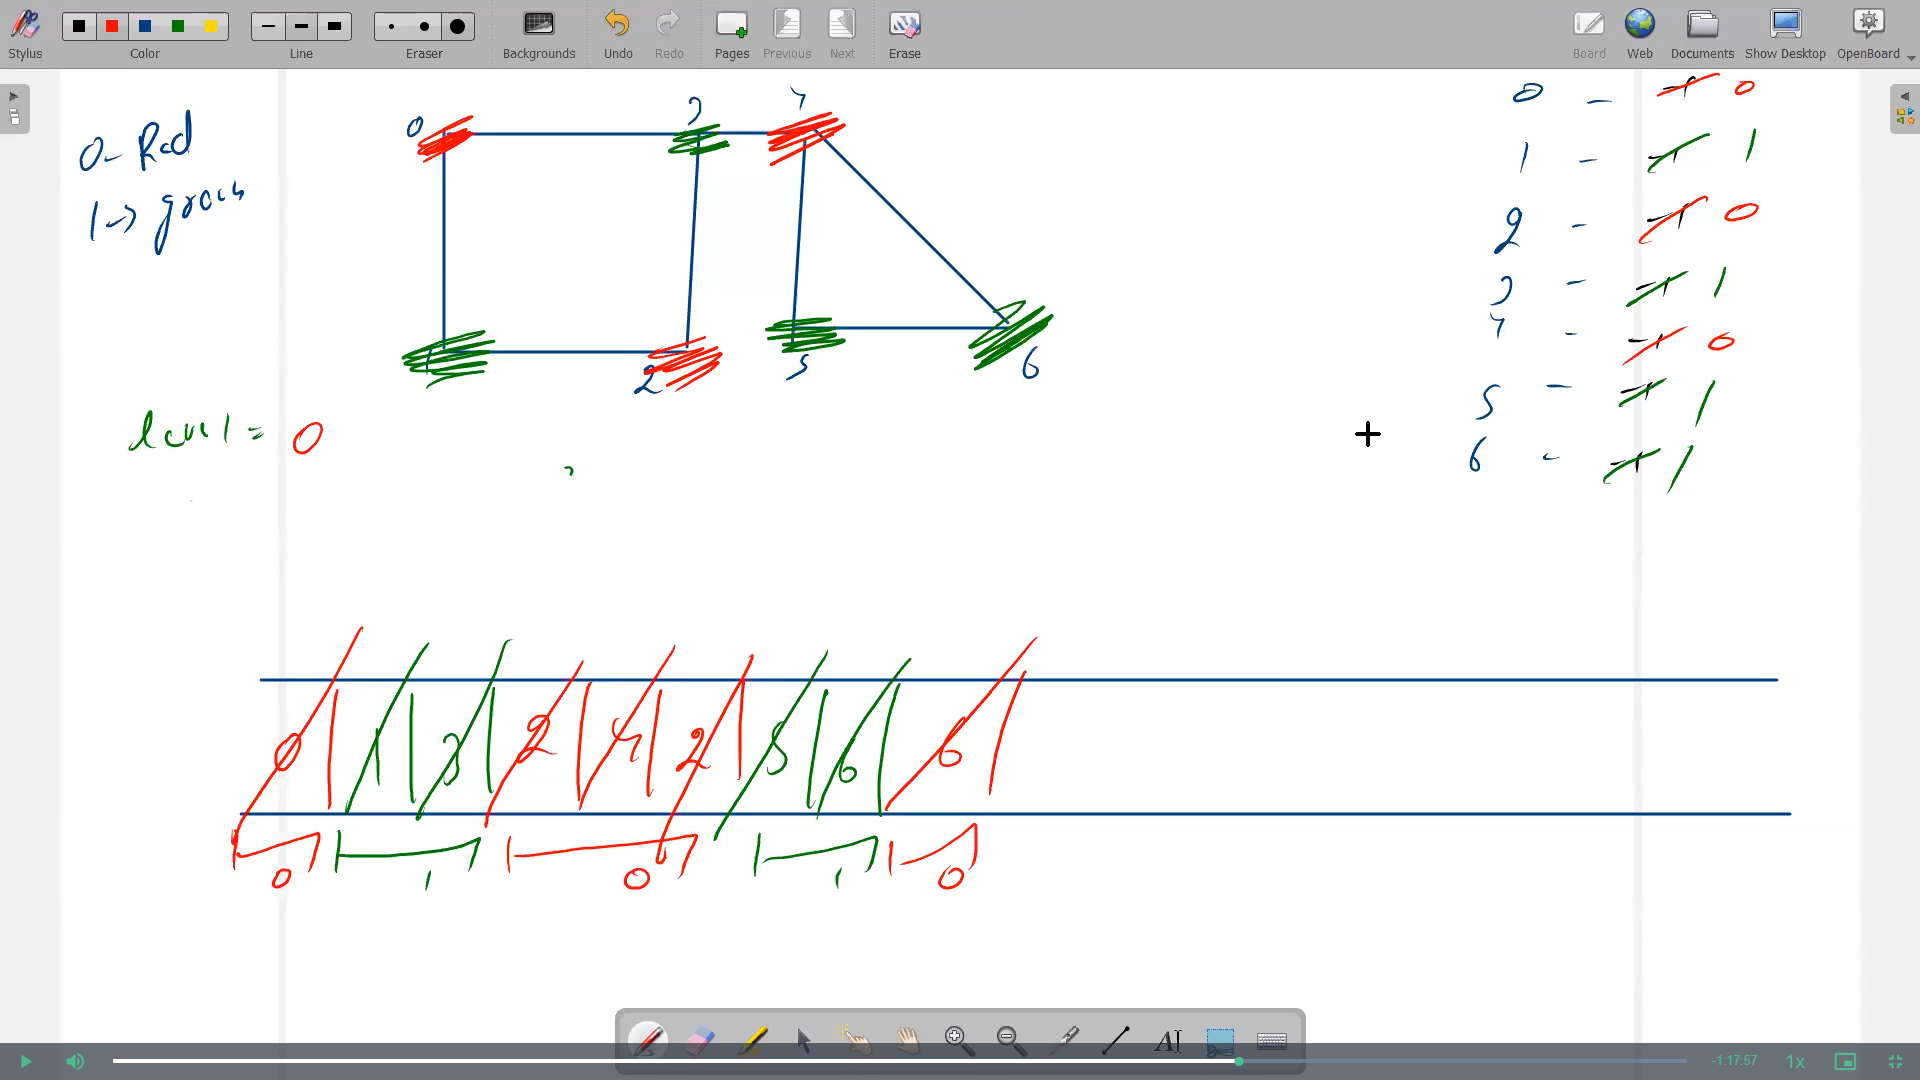 Stylus
Color
Line
Eraser
Backgrounds
Undo
Redo
Pages
Previous
Next
Erase
Board
Web
Documents
Show Desktop
OpenBoard
0- Red
1->
0 3 4
1 2 5 6
level = 0
0 - 0
1 - 1
2 - 0
3 - 1
4 - 0
5 - 1
6 - 1
0 1 3 2 4 2 5 6 6
0 1 0 1 0
-1:17:57
1x